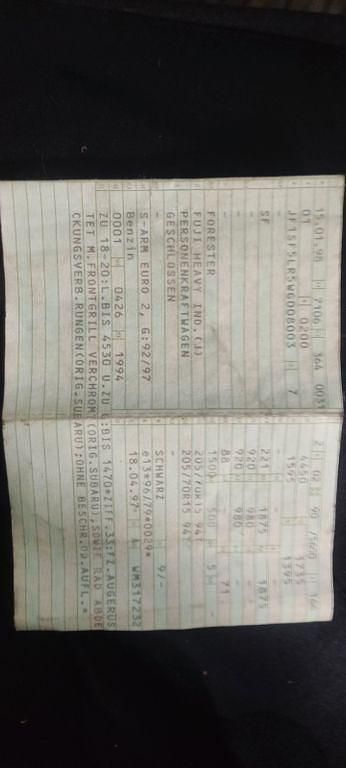 15.01.98 7106 364 0031
01 0200
JF1SF5LR5WG008003 7
-
SF
-
-
FORESTER
FUJI HEAVY IND.(J)
PERSONENKRAFTWAGEN
GESCHLOSSEN
-
S-ARM EURO 2, G:92/97
Benzin
0001 0426 1994
2 02 90 /5600 164
4450 1735
1595 1395
221 1875 1875
920 980
920 980
88 71
1500 500 5 -
205/70R15 94T
205/70R15 94T
-
-
SCHWARZ 9/-
e13*96/79*0029*
18.04.97 A WM317232
ZU 18-20:L.BIS 4530 U.ZU :BIS 1470*ZIFF.33:FZ.AUGERÜS
TET M.FRONTGRILL VERCHROM (ORIG.SUBARU),SOWIE RAD ABDE
CKUNGSVERB.RUNGEN(ORIG.SUBARU);OHNE BESCHR.OD.AUFL.*